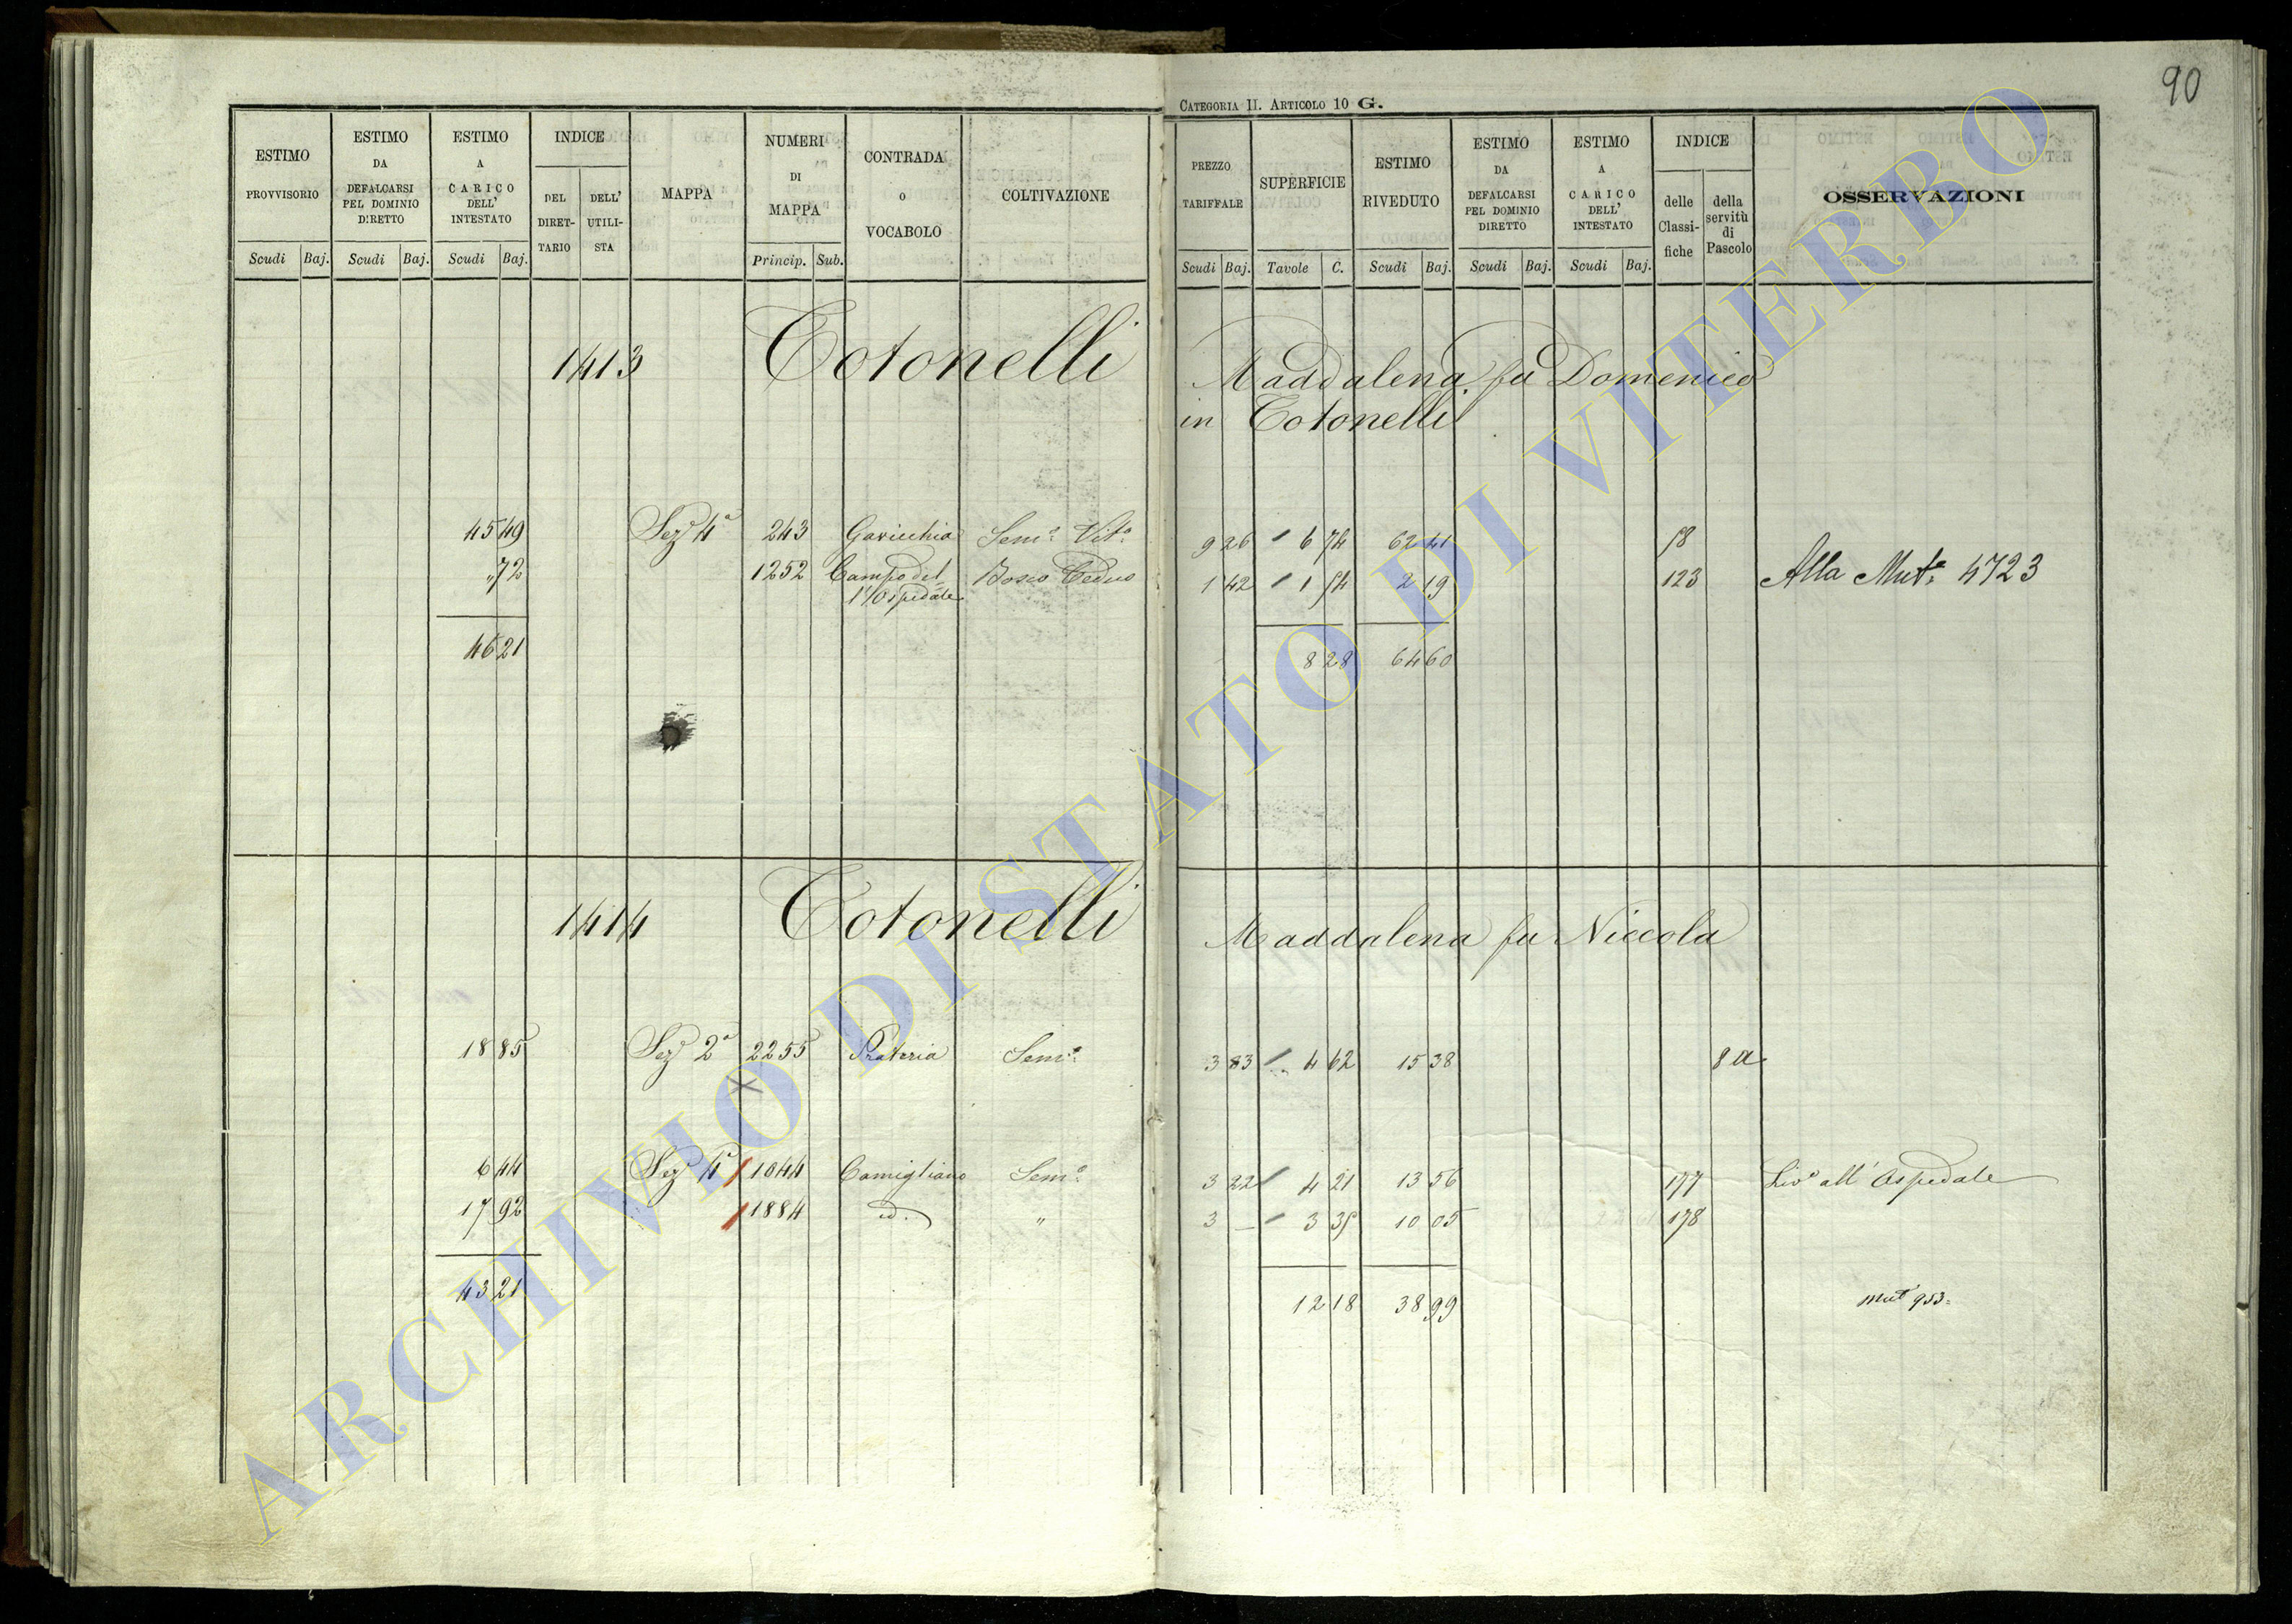 90
CATEGORIA II. ARTICOLO 10 G.
ESTIMO PROVVISORIO Scudi Baj.
ESTIMO DA DEFALCARSI PEL DOMINIO DIRETTO Scudi Baj.
ESTIMO A CARICO DELL' INTESTATO Scudi Baj.
INDICE DEL DIRET-TARIO DELL' UTILI-STA
MAPPA
NUMERI DI MAPPA Princip. Sub.
CONTRADA o VOCABOLO
COLTIVAZIONE
PREZZO TARIFFALE Scudi Baj.
SUPERFICIE Tavole C.
ESTIMO RIVEDUTO Scudi Baj.
ESTIMO DA DEFALCARSI PEL DOMINIO DIRETTO Scudi Baj.
ESTIMO A CARICO DELL' INTESTATO Scudi Baj.
INDICE delle Classi-fiche della servitù di Pascolo
OSSERVAZIONI
1413 Totonelli Maddalena fu Domenico
in Totonelli
45 49 Sezᵉ 4ª 243 Gavicchia Semº Vitº 9 26 6 74 62 41 58
" 72 1252 Campo del Bosco Ceduo 1 42 1 54 2 19 123 Alla Mutª 4723
l'Ospedale
46 21 8 28 64 60
1414 Totonelli Maddalena fu Niccola
18 85 Sezᵉ 2ª 2255 Prateria Semº 3 33 4 62 15 38 8 a
6 44 Sezᵉ 4ª 1044 Camigliano Semº 3 22 4 21 13 56 177 Livº all'Ospedale
17 92 1884 id. " 3 — 3 35 10 05 178
43 21 12 18 38 99 Mutª 953
ARCHIVIO DI STATO DI VITERBO